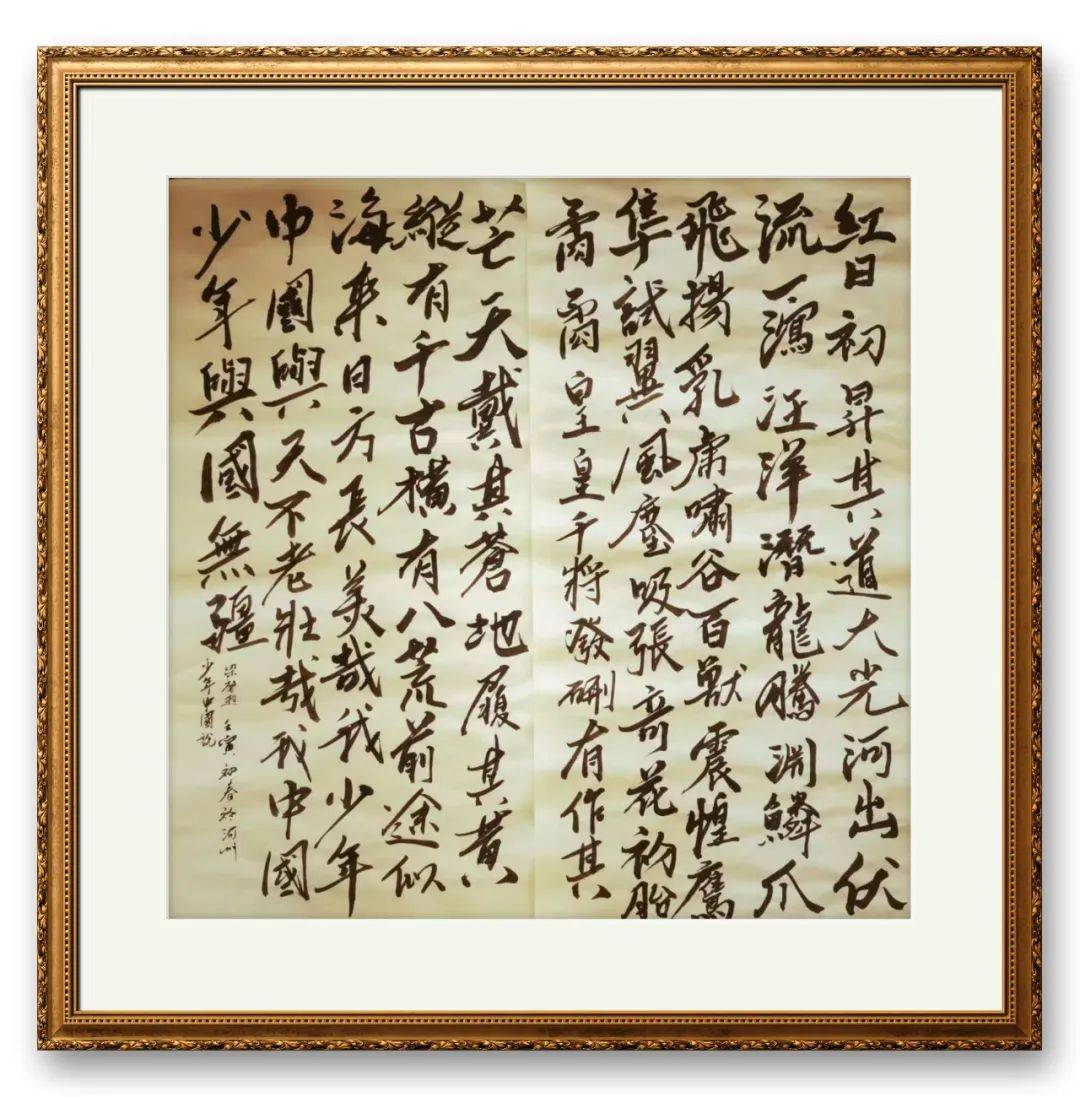 紅日初昇其道大光河出伏
流一瀉汪洋潛龍騰淵鱗爪
飛揚乳虎嘯谷百獸震惶鷹
隼試翼風塵吸張奇花初胎
矞矞皇皇干將發硎有作其
芒天戴其蒼地履其黃
縱有千古橫有八荒前途似
海來日方長美哉我少年
中國與天不老壯哉我中國
少年與國無疆
梁啓超 壬寅 初春於河州
少年中國說